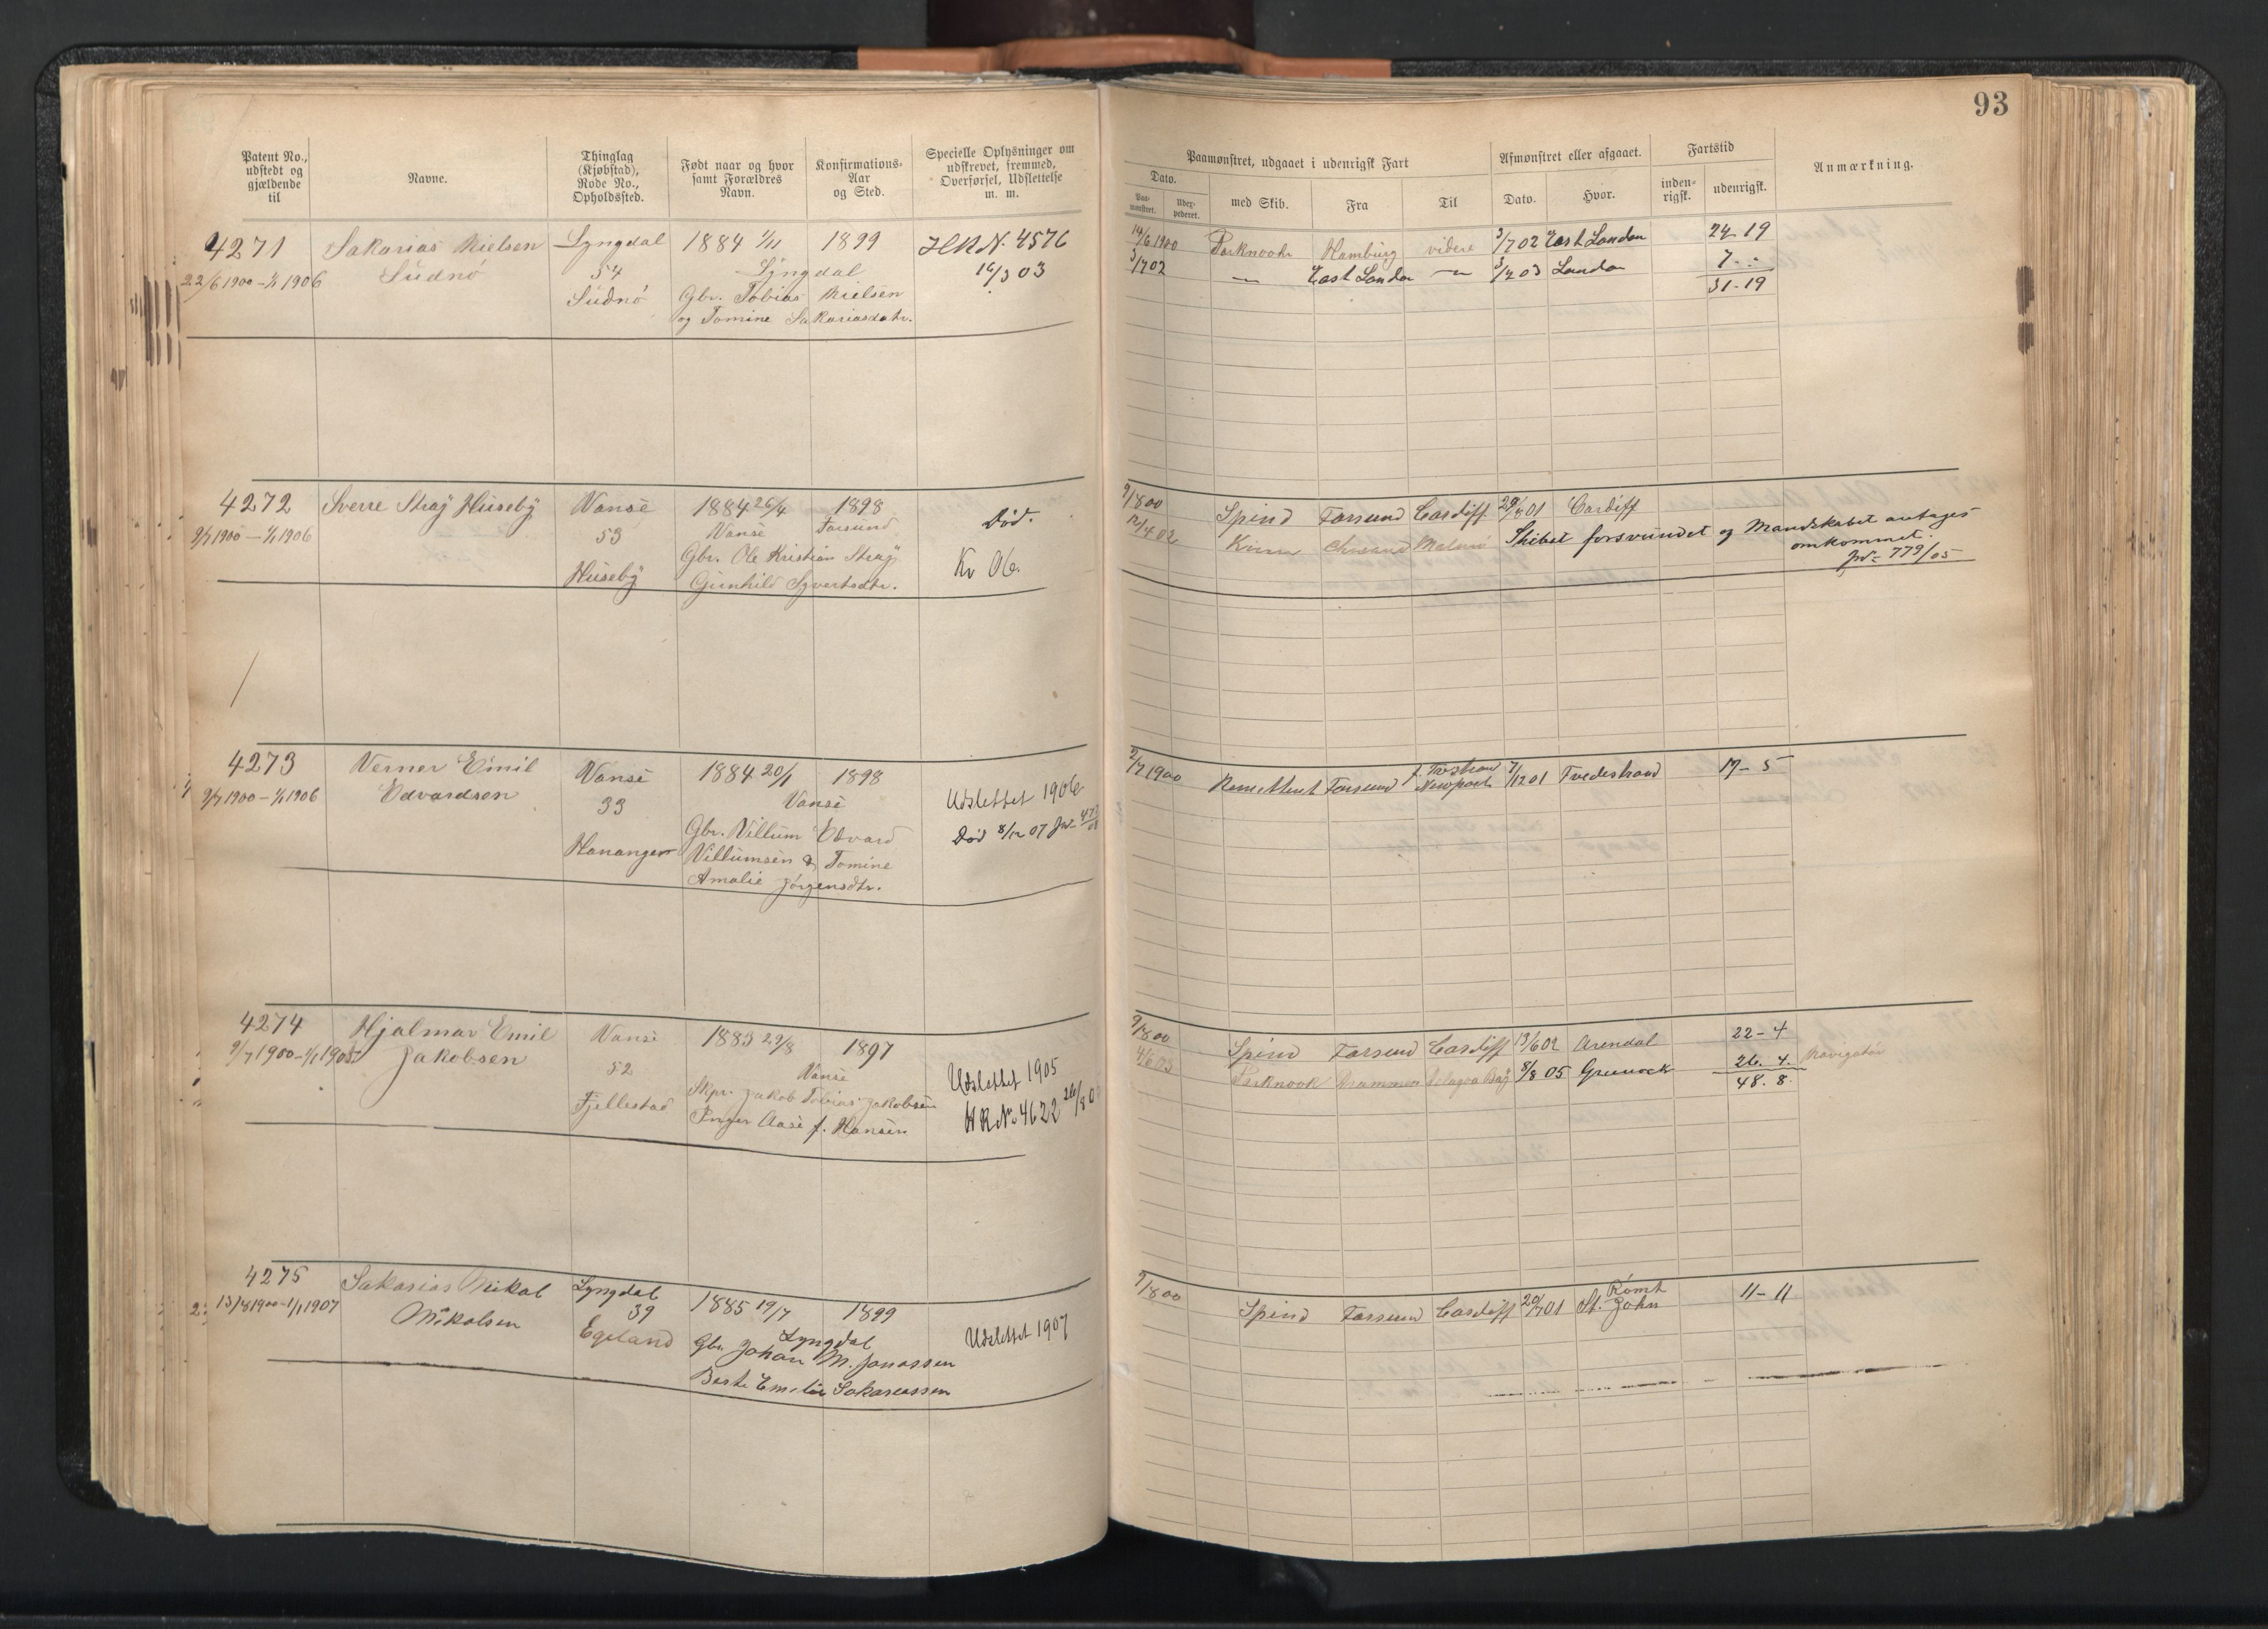 93
Patent No., udstedt og gjældende til
Navne.
Thinglag (Kjøbstad), Rode No., Opholdssted.
Født naar og hvor samt Forældres Navn.
Konfirmations-Aar og Sted.
Specielle Oplysninger om udskrevet, fremmed, Overførsel, Udslettelse m. m.
Paamønstret, udgaaet i udenrigsk Fart
Afmønstret eller afgaaet.
Fartstid
Anmærkning.
Dato.
Paa-mønstret.
Udex-pederet.
med Skib.
Fra
Til
Dato.
Hvor.
inden-rigsk.
udenrigsk.
4271 Sakarias Nielsen Lyngdal 1884 1/11 1899 HR N. 4576
22/6 1900 – 1/1 1906 Sudnø 54 Lyngdal 16/3 03
Sudnø Gbr. Tobias Nielsen
og Tomine Sakariasdatr.
14/6 1900 Parknook Hamburg videre 3/7 02 East London 24-19
3/7 02 — East London — 3/2 03 London 7 - -
31-19
4272 Sverre Stray Huseby Vanse 1884 26/4 1898 Død.
9/7 1900 – 1/1 1906 53 Vanse Farsund
Huseby Gbr. Ole Kristian Stray Kv 06.
Gunhild Syvertsdtr.
9/7 800 Spind Farsund Cardiff 29/8 01 Cardiff
12/4 02 Chrsand Malmö Skibet forsvundet og Mandskabet antages
omkommet.
Jr. 779/05
4273 Verner Emil Vanse 1884 20/1 1898
9/7 1900 – 1/1 1906 Edvardsen 33 Vanse Udslettet 1906
Hananger Gbr. Villum Edvard Død 8/12 07
Villumsen & Tomine
Amalie Jørgensdtr.
2/7 1900 Remittent Farsund Newport 7/12 01 Tvedestrand 17-5
4274 Hjalmar Emil Vanse 1883 29/8 1897
9/7 1900 – 1/1 1905 Jakobsen 52 Vanse Udslettet 1905
Fjellestad Skpr. Jakob Tobias Jakobsen HR No 4622
Inger Aase f. Hansen
9/7 800 Spind Farsund Cardiff 13/6 02 Arendal 22-4
4/6 03 Parknook Drammen Delagoa Bay 8/8 05 Greenock 26. 4. Navigatør
48. 8.
4275 Sakarias Mikal Lyngdal 1885 19/7 1899
13/8 1900 – 1/1 1907 Mikalsen 39 Lyngdal Udslettet 1907
Egeland Gbr. Johan M. Janassen
Berte Emilie Sakariassen
9/7 800 Spind Farsund Cardiff 20/7 01 Rømt St. John 11-11